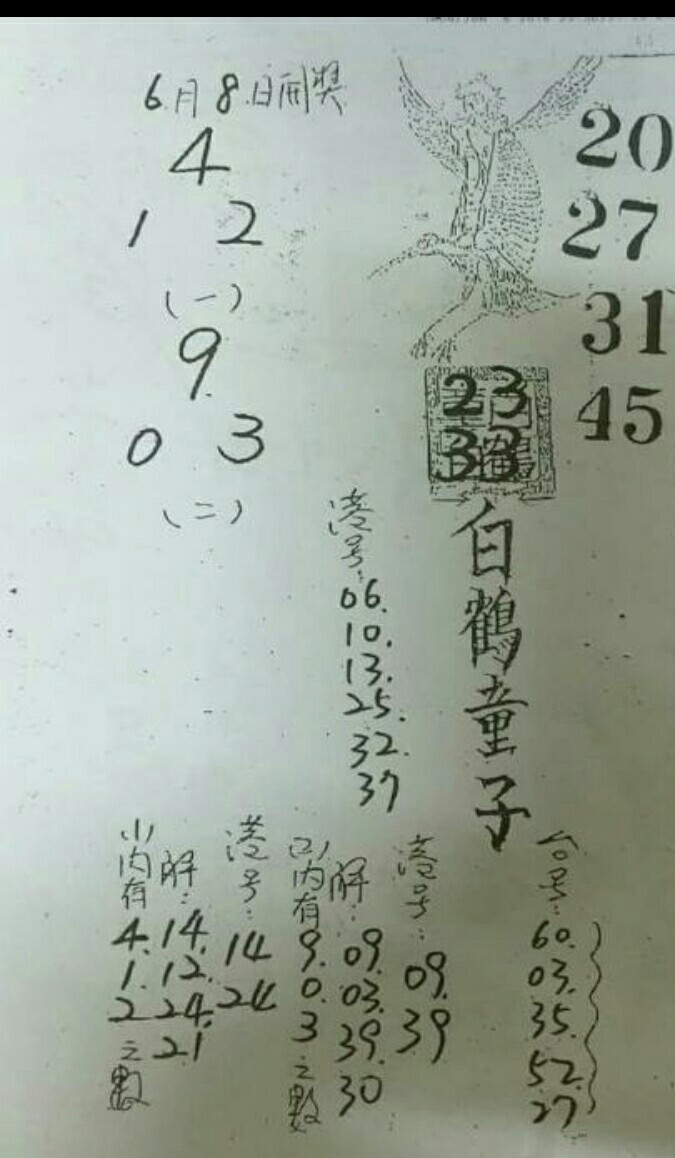 6月8日開獎
4
1 2
(一)
9
0 3
(二)
20
27
31
45
23
33
白鶴童子
港号:
06.
10.
13.
25.
32.
37
(1)内有
4.
1.
2
之數
解:
14.
12.
24.
21
港号:
14
24
(2)内有
9.
0.
3
之數
解:
09.
03.
39.
30
港号:
09.
39
台号:
60.
03.
35.
52.
27